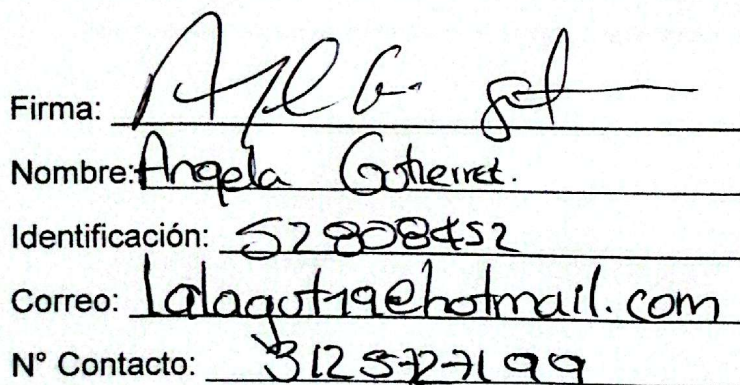 Firma:
Nombre: Angela Gutierrez.
Identificación: 52808452
Correo: lalagut19@hotmail.com
N° Contacto: 3125727199